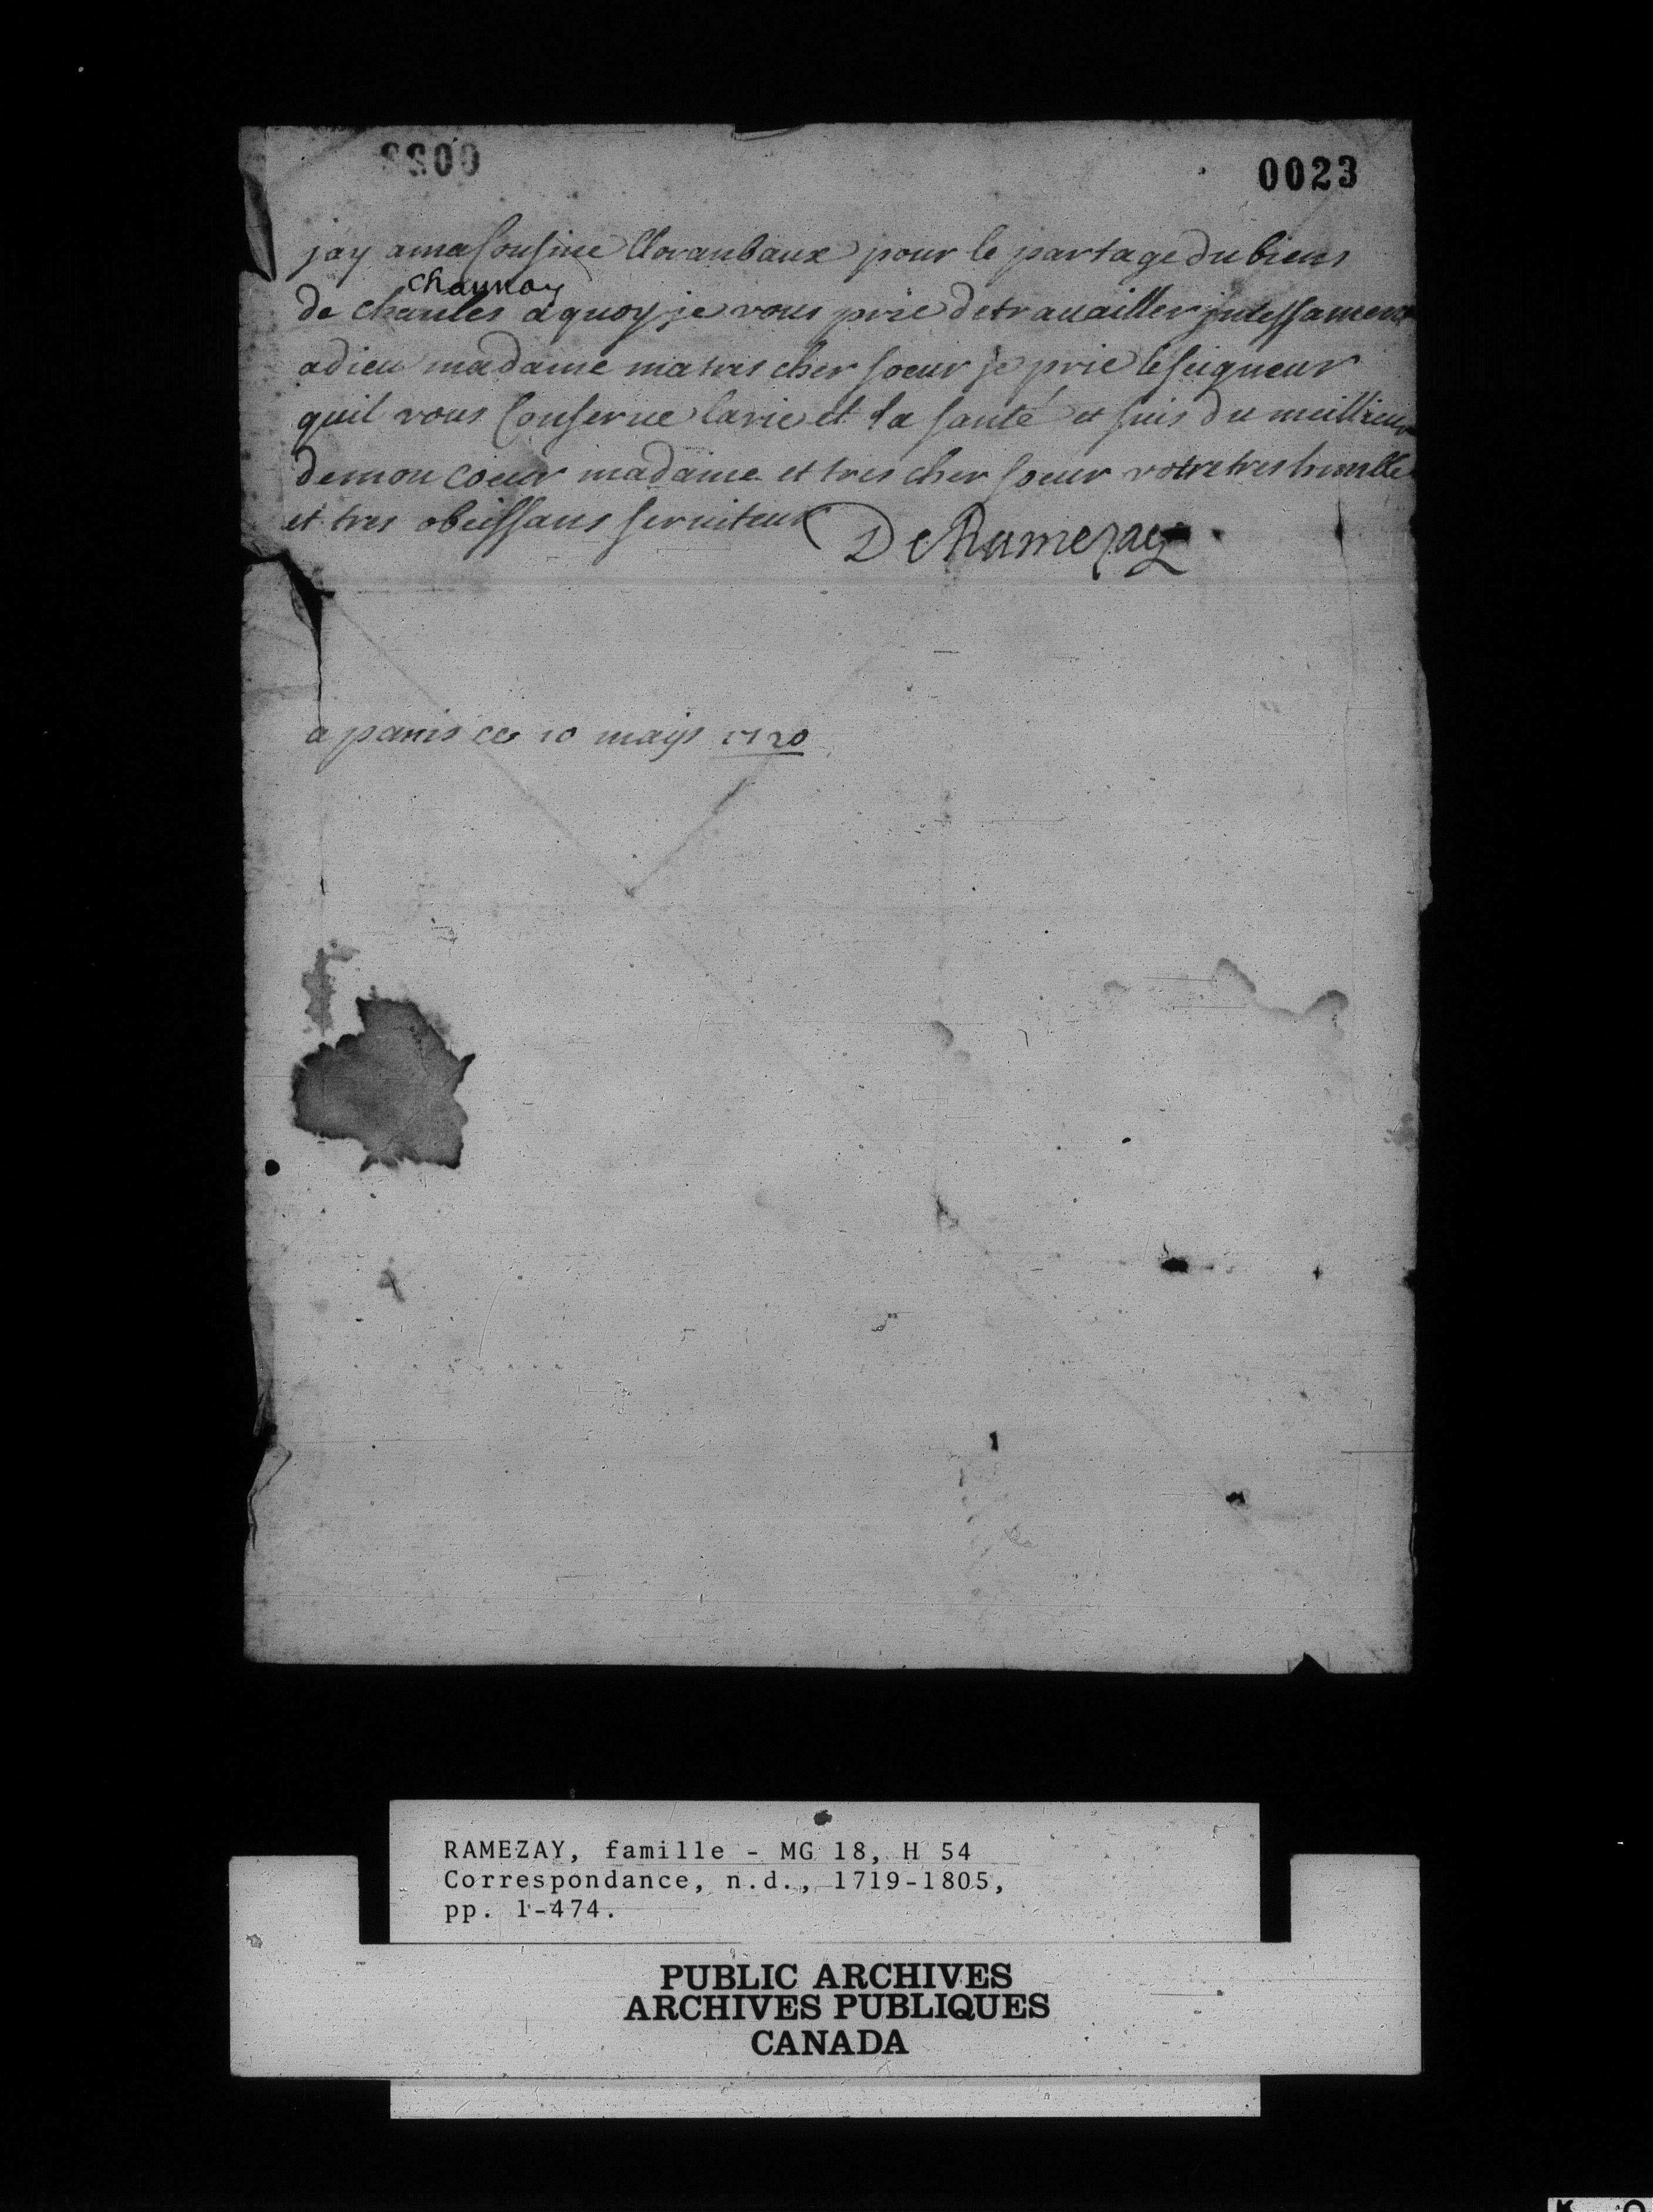 0023
jay a ma Cousine Clorambaux pour le partage du biens
chaunoy
de chaules a quoy je vous prie de travailler jncessament
adieu madame ma tres cher soeur je prie le seigneur
quil vous Conserve la vie et la santé et suis du meillieur
de mon coeur madame et tres cher soeur votre tres humble
et tres obeissans serviteur DeRamezay
a paris ce 10 mays 1720
RAMEZAY, famille - MG 18, H 54
Correspondance, n.d., 1719-1805,
pp. 1-474.
PUBLIC ARCHIVES
ARCHIVES PUBLIQUES
CANADA